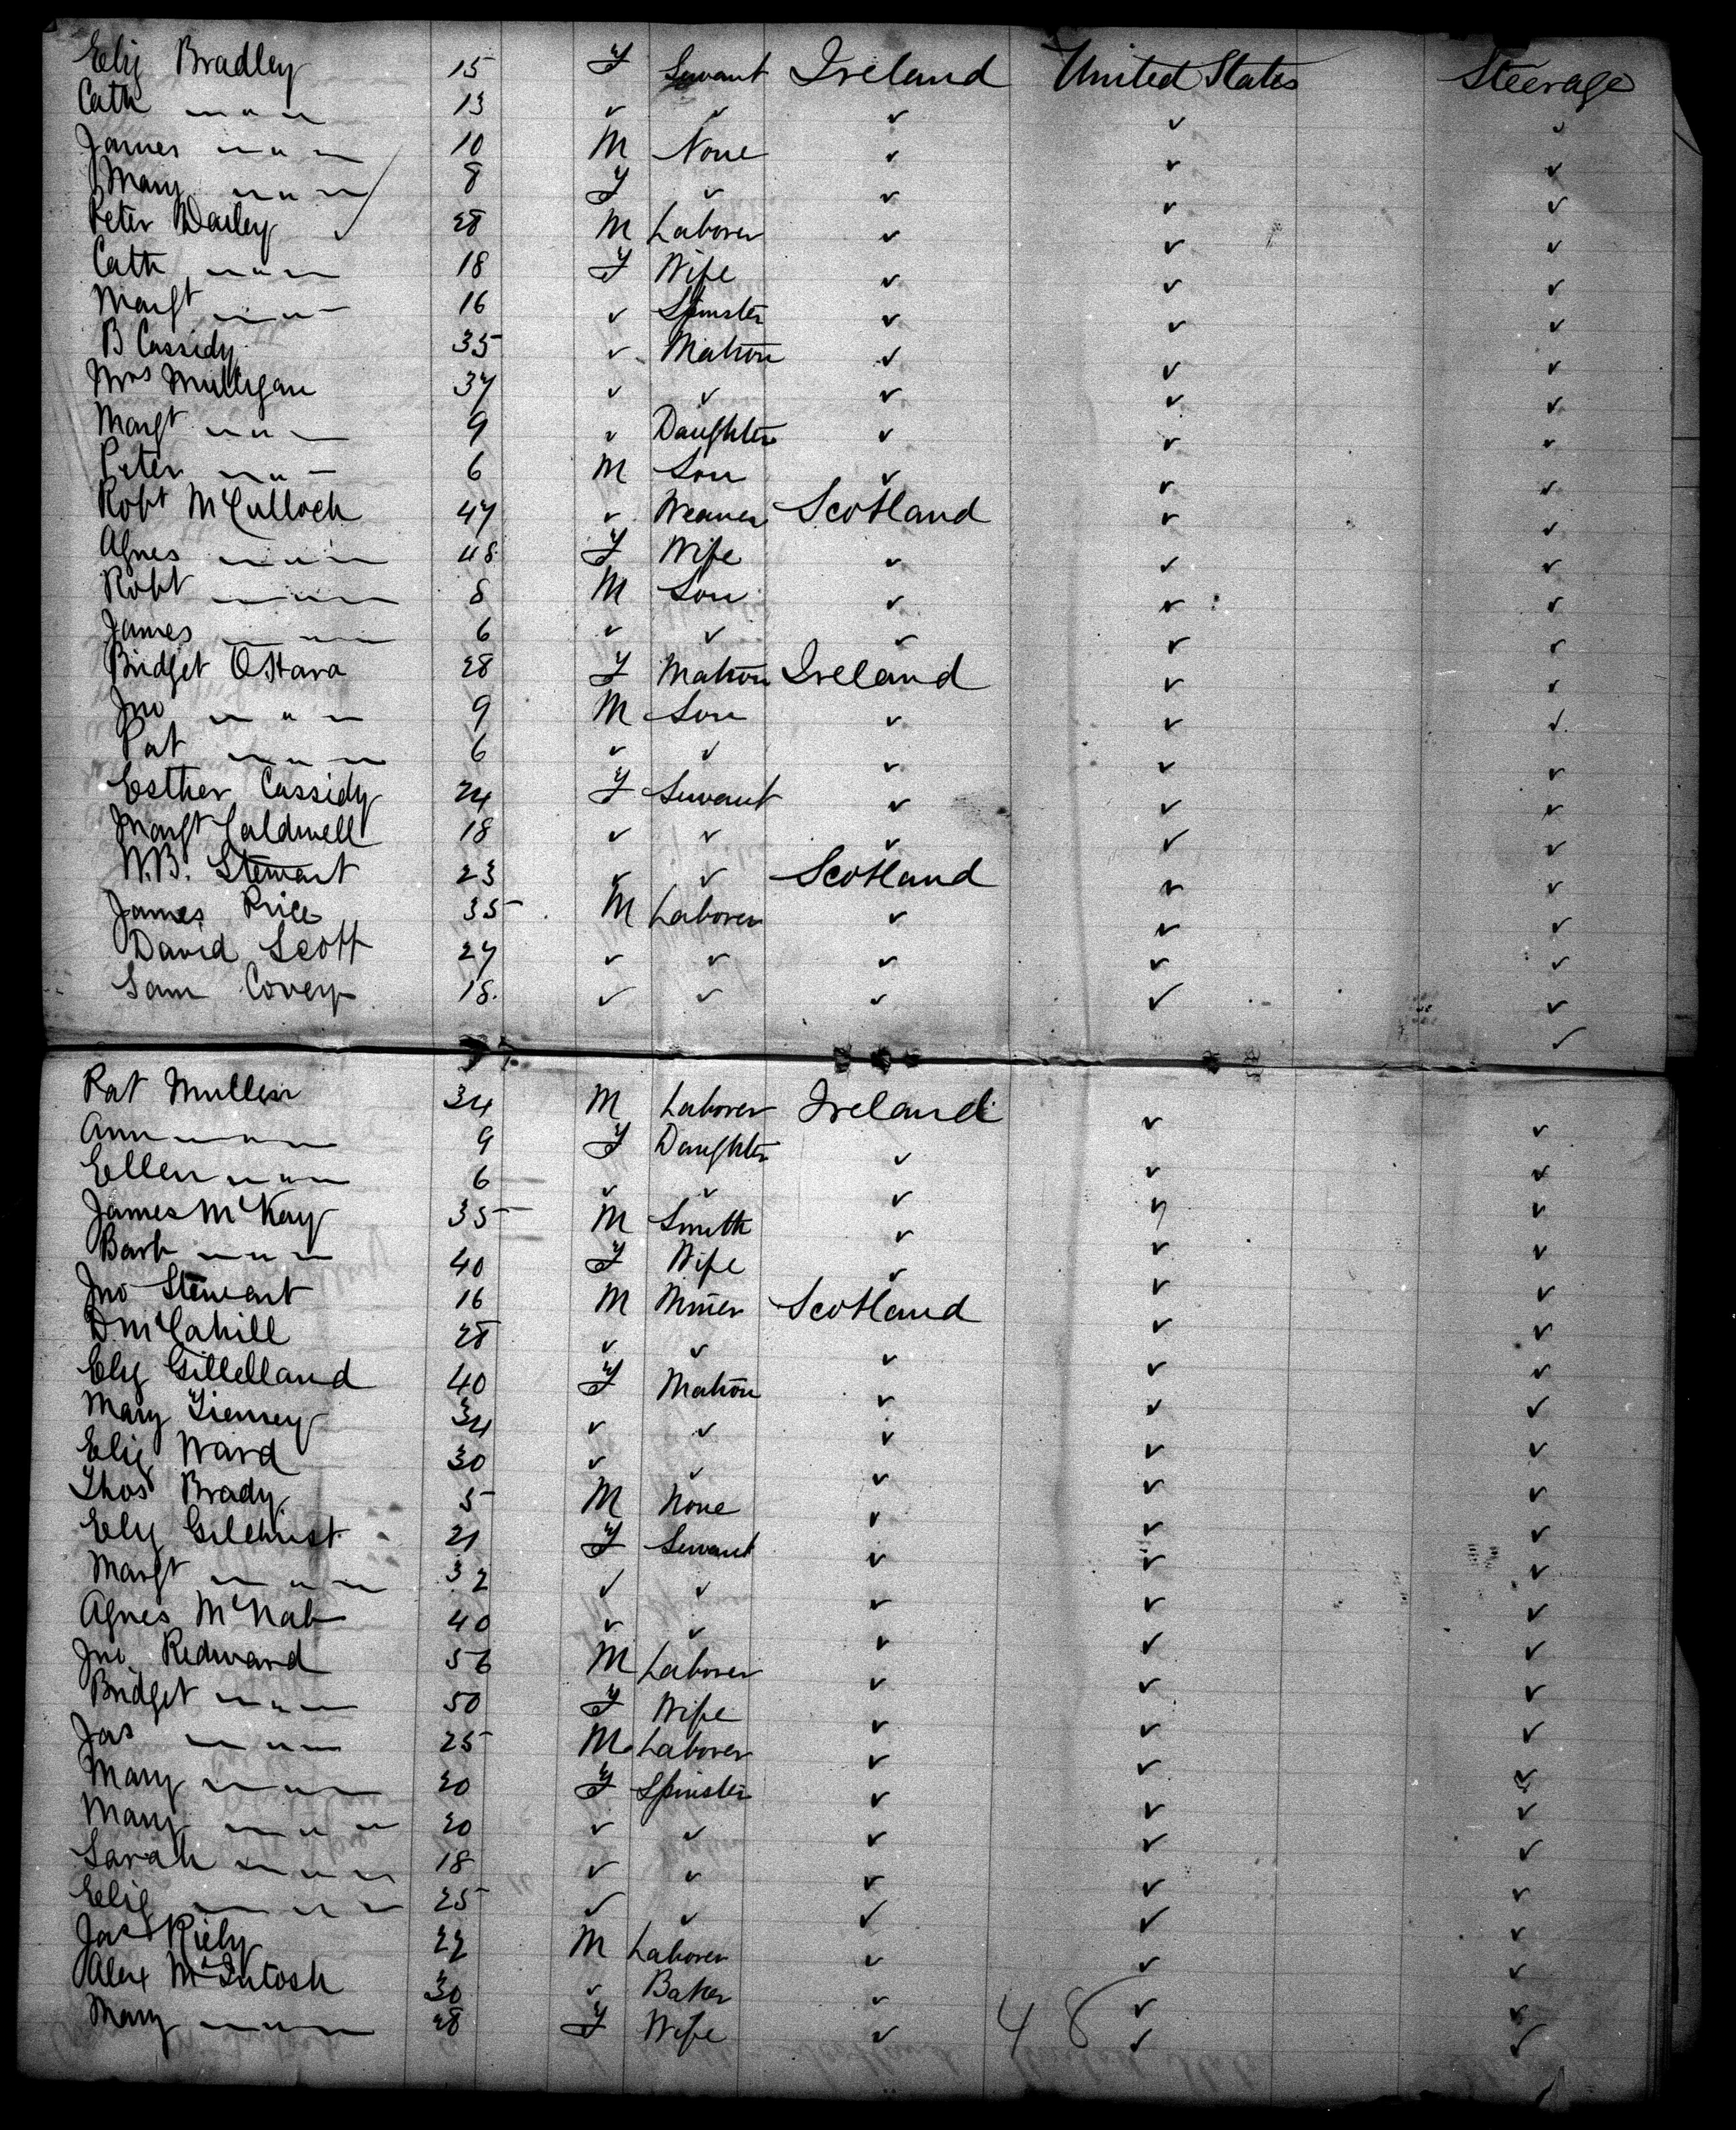 Eliz Bradley 15 F Servant Ireland United States Steerage
Cath " 13 " " " " "
James " 10 M None " " "
Mary " 8 F " " " "
Peter Dailey 28 M Laborer " " "
Cath " 18 F Wife " " "
Margt " 16 " Spinster " " "
B Cassidy 35 " Matron " " "
Mrs Mulligan 37 " " " " "
Margt " 9 " Daughter " " "
Peter " 6 M Son " " "
Robt McCulloch 47 " Weaver Scotland " "
Agnes " 48 F Wife " " "
Robt " 8 M Son " " "
James " 6 " " " " "
Bridget O'Hara 28 F Matron Ireland " "
Jno " 9 M Son " " "
Pat " 6 " " " " "
Esther Cassidy 24 F Servant " " "
Margt Caldwell 18 " " " " "
W.B. Stewart 23 " " Scotland " "
James Price 35 M Laborer " " "
David Scott 27 " " " " "
Sam Covey 18 " " " " "
Pat Mullen 34 M Laborer Ireland " "
Ann " 9 F Daughter " " "
Ellen " 6 " " " " "
James McKay 35 M Smith " " "
Barb " 40 F Wife " " "
Jno Stewart 16 M Miner Scotland " "
D. McCahill 28 " " " " "
Eliz Gillelland 40 F Matron " " "
Mary Tierney 34 " " " " "
Eliz Ward 30 " " " " "
Thos Brady 5 M None " " "
Eliz Gilchrist 21 F Servant " " "
Margt " 32 " " " " "
Agnes McNab 40 " " " " "
Jno Redward 56 M Laborer " " "
Bridget " 50 F Wife " " "
Jas " 25 M Laborer " " "
Mary " 20 F Spinster " " "
Mary " 20 " " " " "
Sarah " 18 " " " " "
Eliz " 25 " " " " "
Jas Riely 22 M Laborer " " "
Alex McIntosh 30 " Baker " " "
Mary " 28 F Wife " " "
48